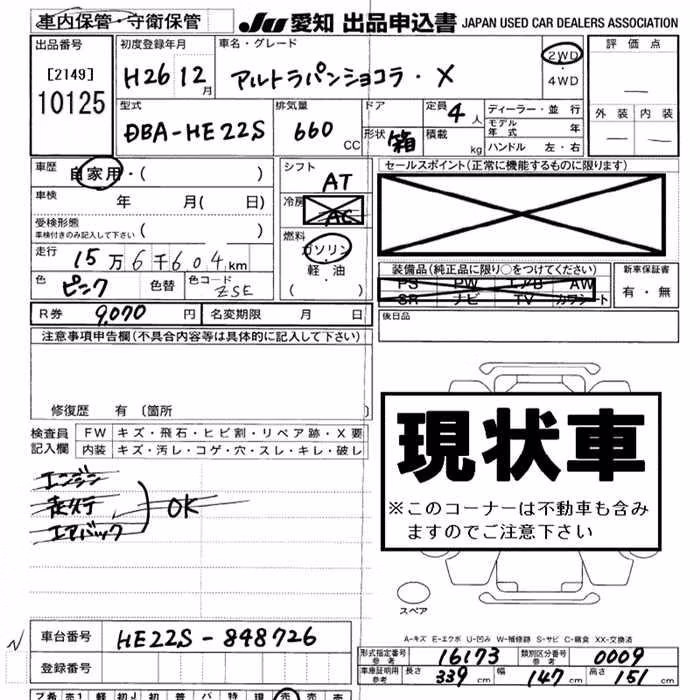 車内保管・守衛保管 JU 愛知 出品申込書 JAPAN USED CAR DEALERS ASSOCIATION
出品番号 初度登録年月 車名・グレード 2WD・4WD 評価点
[2149] 10125 H26 12月 アルトラパンショコラ・X —
型式 排気量 ドア形状 定員 ディーラー・並行 外装 内装
DBA-HE22S 660CC 箱 4人 積載 kg モデル年式 年 ハンドル 左・右 — —
車歴 自家用・( )
シフト AT
セールスポイント(正常に機能するものに限ります)
車検 年 月( 日)
冷房 AC
受検形態 車検付きのみ記入して下さい ( )
燃料 ガソリン・軽油 ( )
走行 15万6千604km
装備品(純正品に限り○をつけてください) 新車保証書
PS PW エアB AW
SR ナビ TV カワシート
有・無
色 ピンク 色替 色コード ZSE
R券 9,070円 名変期限 月 日
後日品
注意事項申告欄(不具合内容等は具体的に記入して下さい)
修復歴 有(箇所 )
現状車
※このコーナーは不動車も含み
ますのでご注意下さい
検査員記入欄 FW キズ・飛石・ヒビ割・リペア跡・X要
内装 キズ・汚レ・コゲ・穴・スレ・キレ・破レ
エンジン
エアバック
OK
スペア
A-キズ E-エクボ U-凹み W-補修跡 S-サビ C-腐食 XX-交換済
車台番号 HE22S-848726
登録番号
形式指定番号 参考 16173 類別区分番号 参考 0009
車庫証明用 参考 長さ 339cm 幅 147cm 高さ 151cm